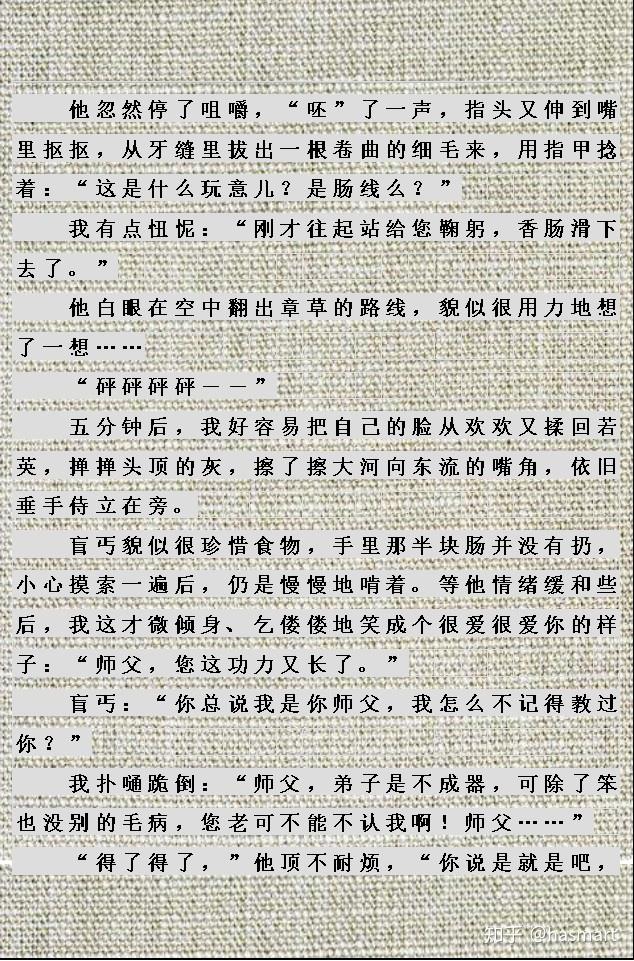 他忽然停了咀嚼，“呸”了一声，指头又伸到嘴
里抠抠，从牙缝里拔出一根卷曲的细毛来，用指甲捻
着：“这是什么玩意儿？是肠线么？”
我有点忸怩：“刚才往起站给您鞠躬，香肠滑下
去了。”
他白眼在空中翻出章草的路线，貌似很用力地想
了一想……
“砰砰砰砰——”
五分钟后，我好容易把自己的脸从欢欢又揉回若
英，掸掸头顶的灰，擦了擦大河向东流的嘴角，依旧
垂手侍立在旁。
盲丐貌似很珍惜食物，手里那半块肠并没有扔，
小心摸索一遍后，仍是慢慢地啃着。等他情绪缓和些
后，我这才微倾身、乞偻偻地笑成个很爱很爱你的样
子：“师父，您这功力又长了。”
盲丐：“你总说我是你师父，我怎么不记得教过
你？”
我扑嗵跪倒：“师父，弟子是不成器，可除了笨
也没别的毛病，您老可不能不认我啊！师父……”
“得了得了，”他顶不耐烦，“你说是就是吧，
知乎 @hasmart